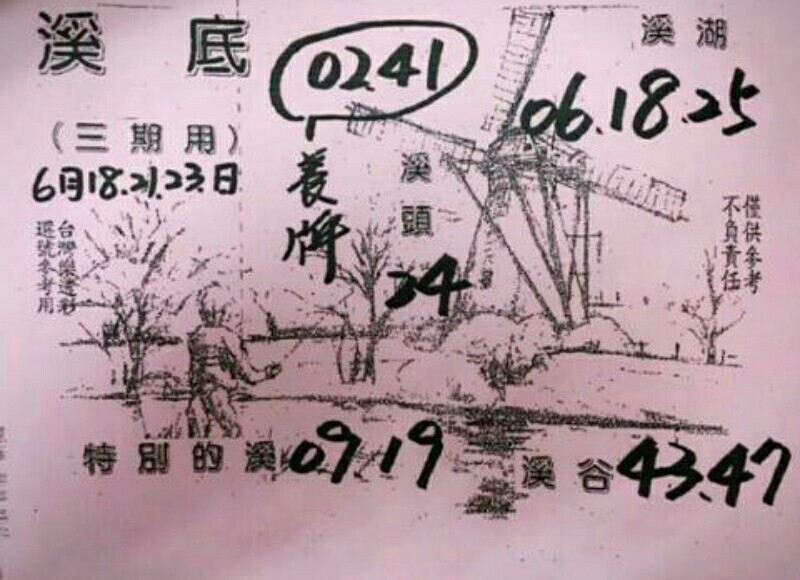 溪底
02.41
溪湖
06.18.25
（三期用）
6月18.21.23.日
養牌
溪頭
24
台灣樂透彩
選號參考用
僅供參考
不負責任
特別的溪 09.19
溪谷 43.47